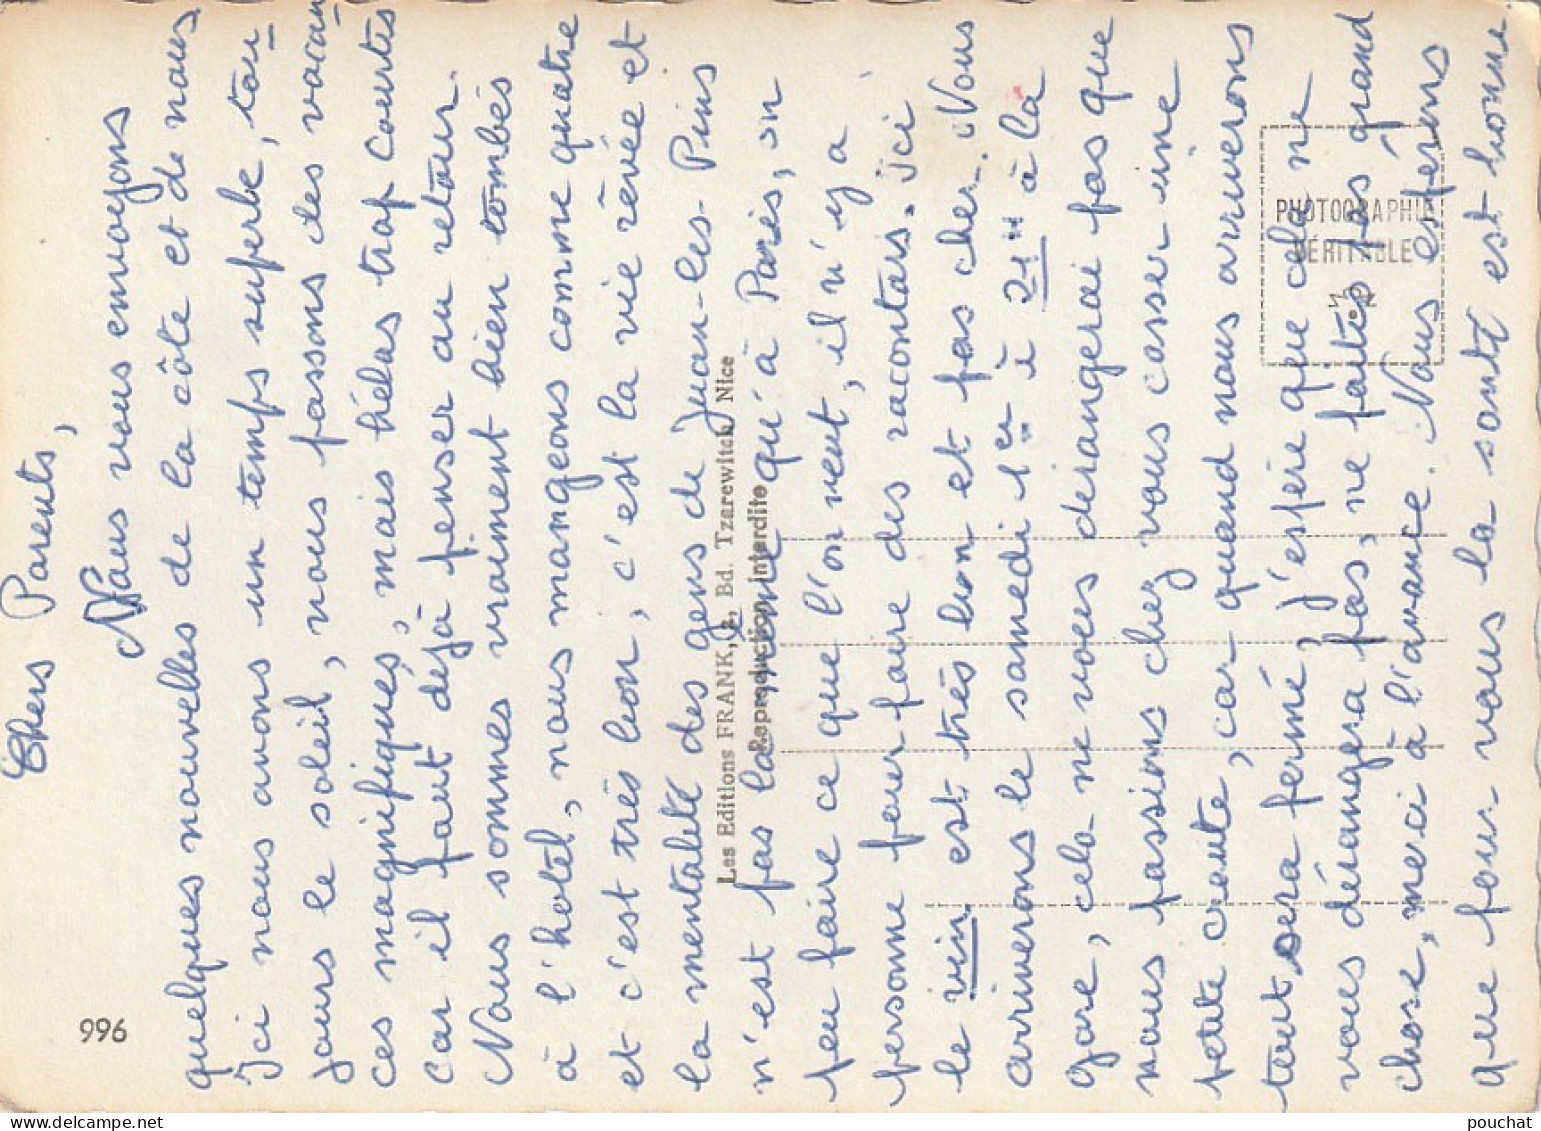 Chers Parents,
Nous vous envoyons
quelques nouvelles de la côte et de nous
Ici nous avons un temps superbe, tou-
jours le soleil, nous passons des vacan-
ces magnifiques, mais hélas trop courtes
car il faut déjà penser au retour.
Nous sommes vraiment bien tombés
à l'hotel, nous mangeons comme quatre
et c'est très bon, c'est la vie rêvée et
la mentalité des gens de Juan-les-Pins
n'est pas la même qu'à Paris, on
peu faire ce que l'on veut, il n'y a
personne pour faire des racontars. Ici
le vin est très bon et pas cher. Nous
arriverons le samedi 1er à 21H à la
gare, cela ne vous dérangerai pas que
nous passions chez vous casser une
petite croute, car quand nous arriverons
tout sera fermé, j'espère que cela ne
vous dérangera pas, ne faites pas grand
chose, merci à l'avance. Nous espérons
que pour vous la santé est bonne
996
Les Editions FRANK, 2, Bd. Tzarewitch Nice
Reproduction Interdite
PHOTOGRAPHIE
VÉRITABLE
pouchat